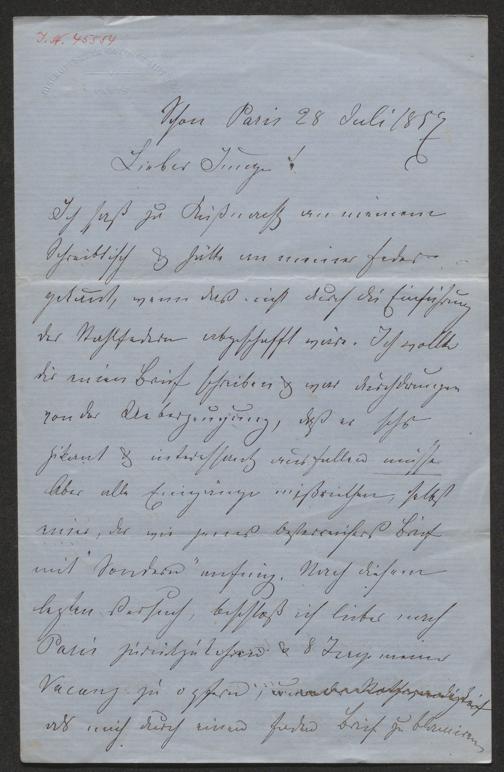 I. N. 45554
Schon Paris 28 Juli 1857
Lieber Junge!
Ich saß zu Küßnacht an meinem
Schreibtisch & hätte an meiner Feder
gekaut, wenn das nicht durch die Einführung
der Stahlfedern abgeschafft wäre. Ich wollte
dir einen Brief schreiben & war durchdrungen
von der Ueberzeugung, daß er sehr
pikant & interessant ausfallen müsse
Aber alle Eingänge mißriethen, selbst
einer, der wie jenes Brief
mit "Sondern" anfing. Nach diesem
letzten Versuch, beschloß ich lieber nach
Paris zurückzukehren & 8 Tage meiner
Vacanz zu opfern,
als mich durch einen faden Brief zu blamiren,